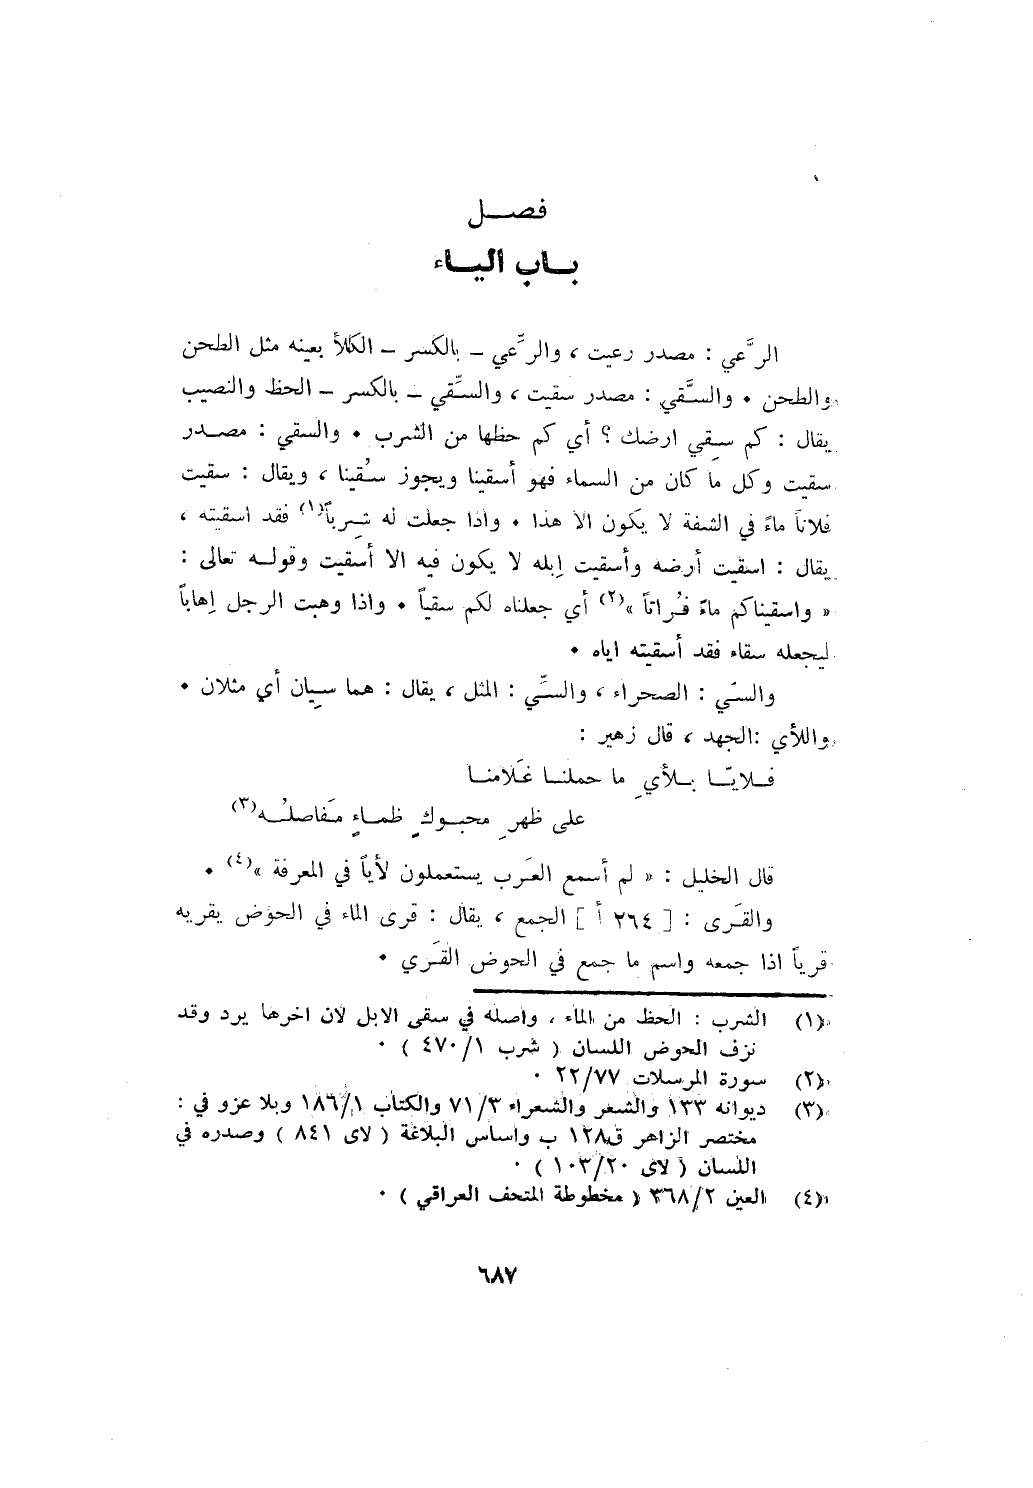 فصـــل
بــاب اليــاء
الرَّعي : مصدر رعيت ، والرِّعي – بالكسر – الكلأ بعينه مثل الطحن
والطحن . والسَّقي : مصدر سقيت ، والسِّقي – بالكسر – الحظ والنصيب
يقال : كم سِقي ارضك ؟ أي كم حظها من الشرب . والسقي : مصـدر
سقيت وكل ما كان من السماء فهو أسقينا ويجوز سُقينا ، ويقال : سقيت
فلاناً ماءً في الشفة لا يكون الا هذا . واذا جعلت له شِرباً(١) فقد اسقيته ،
يقال : اسقيت أرضه وأسقيت إبله لا يكون فيه الا أسقيت وقولـه تعالى :
« واسقيناكم ماءً فُراتاً »(٢) أي جعلناه لكم سقياً . واذا وهبت الرجل إهاباً
ليجعله سقاء فقد أسقيته اياه .
والسَّي : الصحراء ، والسِّي : المثل ، يقال : هما سِيان أي مثلان .
واللأي :الجهد ، قال زهير :
فـلايـّـا بـلأيِ ما حملنـا غَلامنـا
على ظهرِ محبـوكٍ ظمـاءٍ مَفاصلُـه(٣)
قال الخليل : « لم أسمع العَرب يستعملون لأياً في المعرفة »(٤) .
والقَرى : [ ٢٦٤ أ ] الجمع ، يقال : قرى الماء في الحوض يقريه
قرياً اذا جمعه واسم ما جمع في الحوض القَري .
(١) الشرب : الحظ من الماء ، واصله في سقى الابل لان اخرها يرد وقد
نزف الحوض اللسان ( شرب ٤٧٠/١ ) .
(٢) سورة المرسلات ٢٢/٧٧ .
(٣) ديوانه ١٣٣ والشعر والشعراء ٧١/٣ والكتاب ١٨٦/١ وبلا عزو في :
مختصر الزاهر ق١٢٨ ب واساس البلاغة ( لاى ٨٤١ ) وصدره في
اللسان ( لاى ١٠٣/٢٠ ) .
(٤) العين ٣٦٨/٢ ( مخطوطة المتحف العراقي ) .
٦٨٧